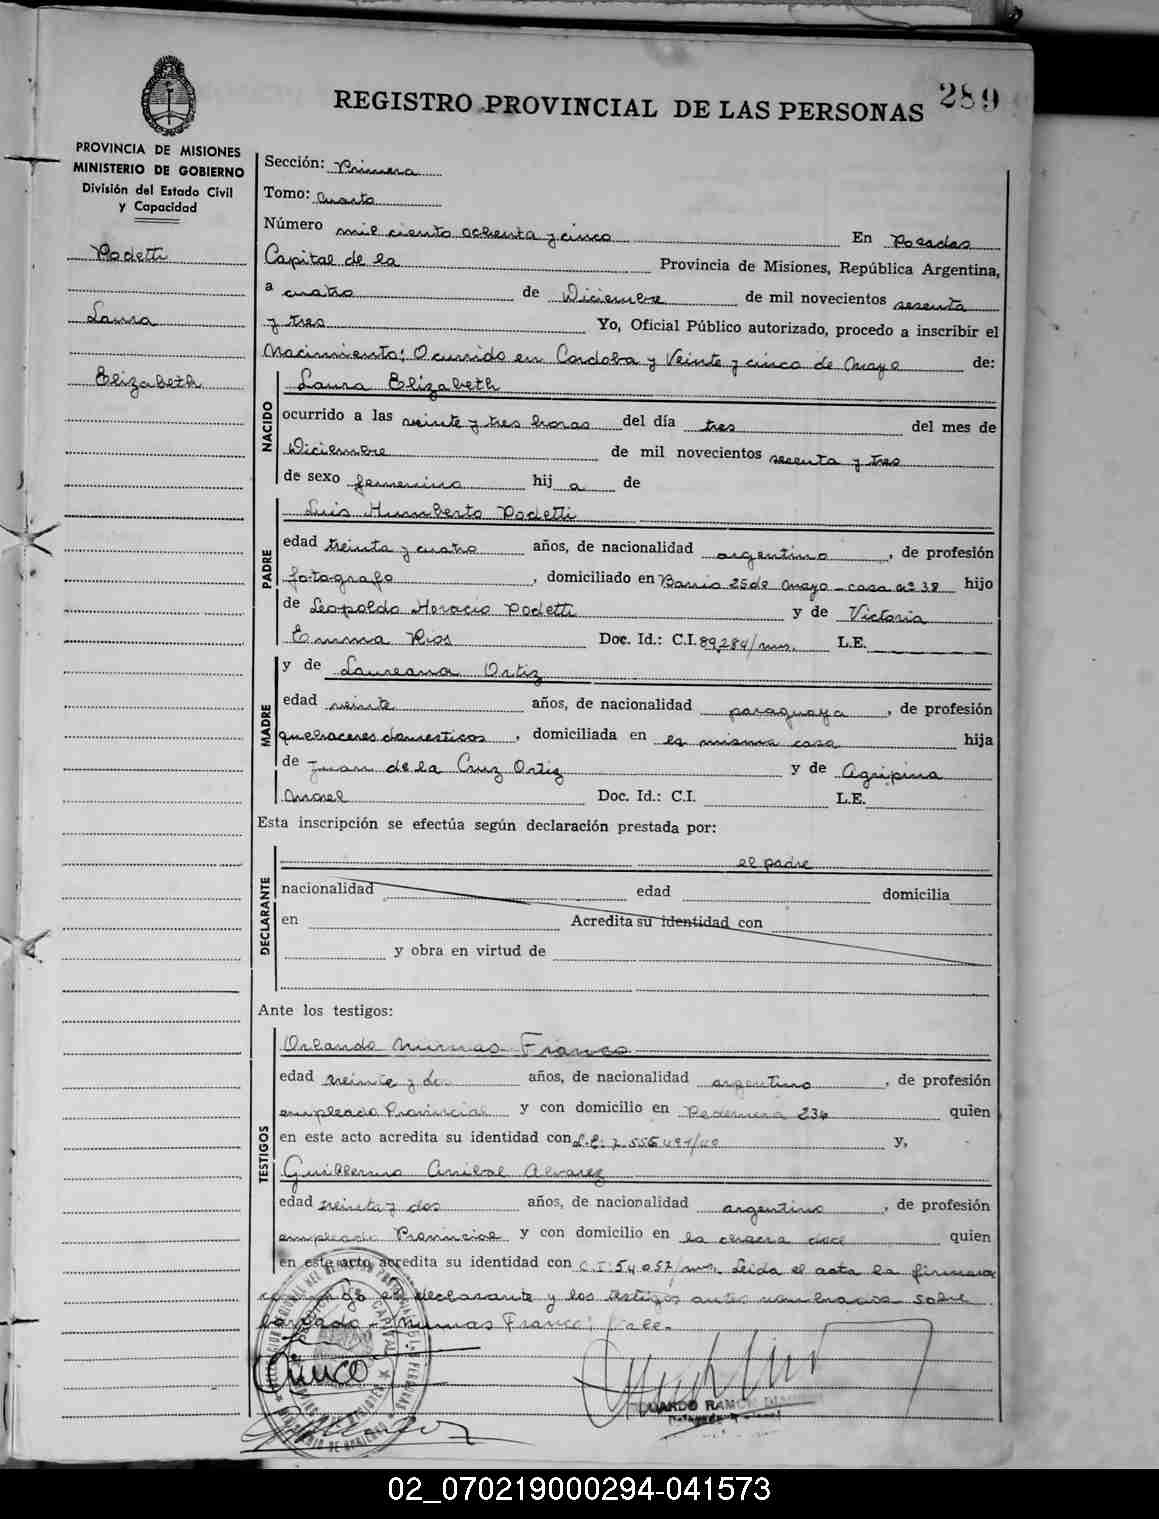 289
REGISTRO PROVINCIAL DE LAS PERSONAS
PROVINCIA DE MISIONES
MINISTERIO DE GOBIERNO
División del Estado Civil
y Capacidad
Podetti
Laura
Elizabeth
Sección: Primera
Tomo: Cuarto
Número mil ciento ochenta y cinco En Posadas
Capital de la Provincia de Misiones, República Argentina,
a cuatro de Diciembre de mil novecientos sesenta
y tres Yo, Oficial Público autorizado, procedo a inscribir el
Nacimiento; Ocurrido en Cordoba y Veinte y cinco de Mayo de:
NACIDO
Laura Elizabeth
ocurrido a las veinte y tres horas del día tres del mes de
Diciembre de mil novecientos sesenta y tres
de sexo femenino hij a de
PADRE
Luis Humberto Podetti
edad treinta y cuatro años, de nacionalidad argentino, de profesión
fotografo, domiciliado en Barrio 25 de Mayo - casa nº 38 hijo
de Leopoldo Horacio Podetti y de Victoria
Emma Rios Doc. Id.: C.I. 89,284/mns. L.E.
MADRE
y de Laureana Ortiz
edad veinte años, de nacionalidad paraguaya, de profesión
quehaceres domesticos, domiciliada en la misma casa hija
de Juan de la Cruz Ortiz y de Agripina
Doc. Id.: C.I. L.E.
Esta inscripción se efectúa según declaración prestada por:
DECLARANTE
el padre
nacionalidad edad domicilia
en Acredita su identidad con
y obra en virtud de
Ante los testigos:
TESTIGOS
Orlando Numas Franco
edad veinte y dos años, de nacionalidad argentino, de profesión
empleado Provincial y con domicilio en Pedernera 236 quien
en este acto acredita su identidad con L.E: y,
Guillermo Anibal Alvarez
edad treinta y dos años, de nacionalidad argentino, de profesión
empleado Provincial y con domicilio en la chacra doce quien
en este acto acredita su identidad con C.I: 54 057/mns. Leida el acta la firman
declarante y los testigos
Numas Franco: Vale.
EDUARDO RAMON
02_070219000294-041573